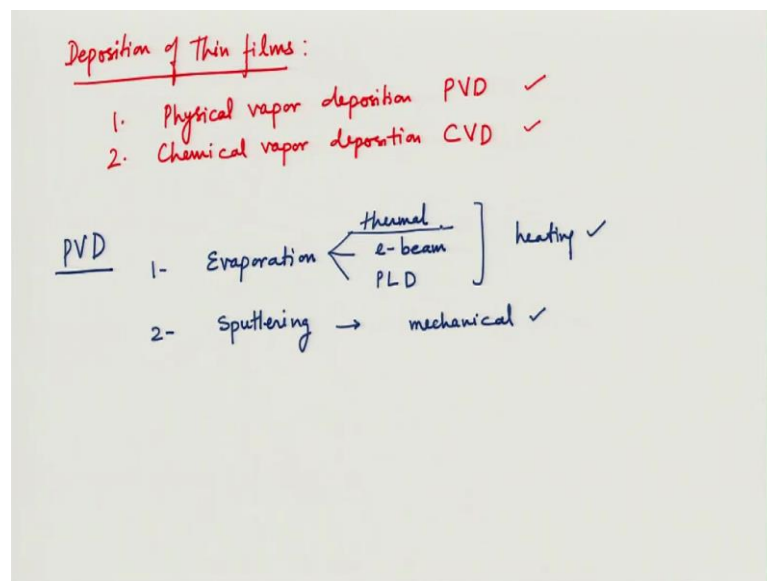 Deposition of Thin films :
1. Physical vapor deposition PVD ✓
2. Chemical vapor deposition CVD ✓
PVD 1- Evaporation thermal
e-beam heating ✓
PLD
2- Sputtering → mechanical ✓